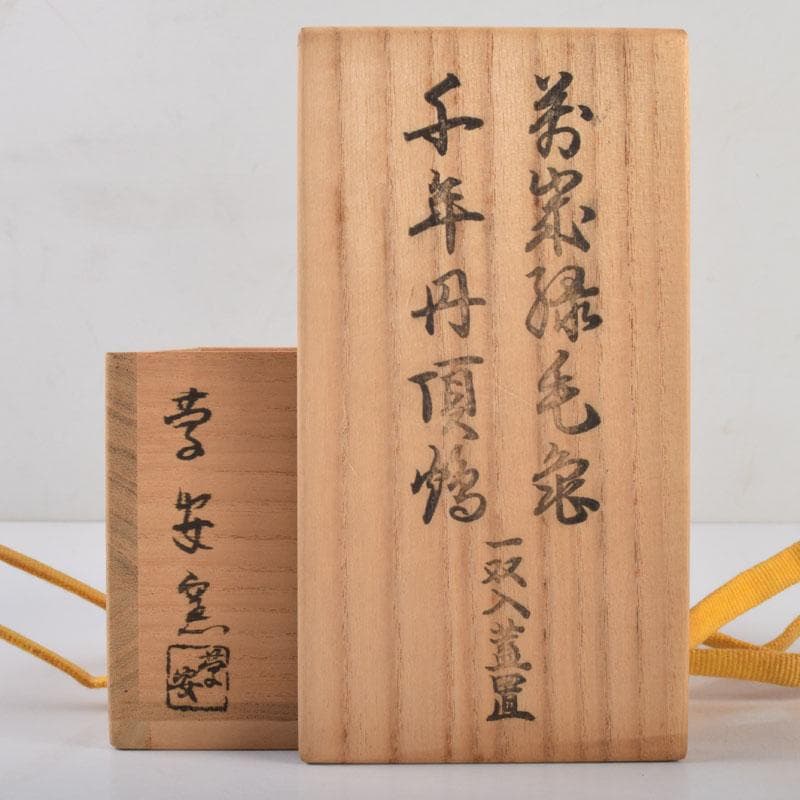 萬歳緑毛亀
千年丹頂鶴
一双入蓋置
夢安窯
夢安